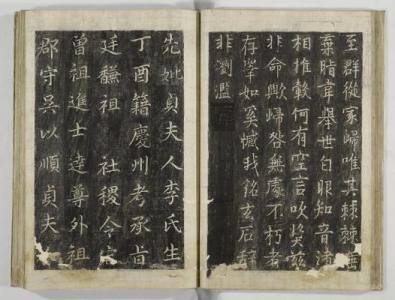 至群從家歸唯其棘棘
棄脂韋擧世白眼知音
相推轂何有空言吹奬玆
非命歟歸咎無處不朽者
存犖如奚憾我銘玄石辭
非瀏濫
先妣貞夫人李氏生
丁酉籍慶州考承旨
廷馦祖 社稷令
曾祖進士達尊外祖
郡守吳以順貞夫